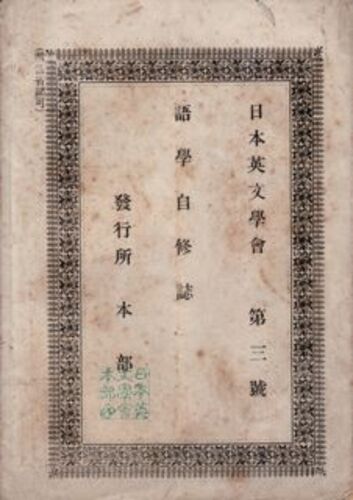 日本英文學會 第三號
語學自修誌
發行所 本部
日本英
文學會
本部印